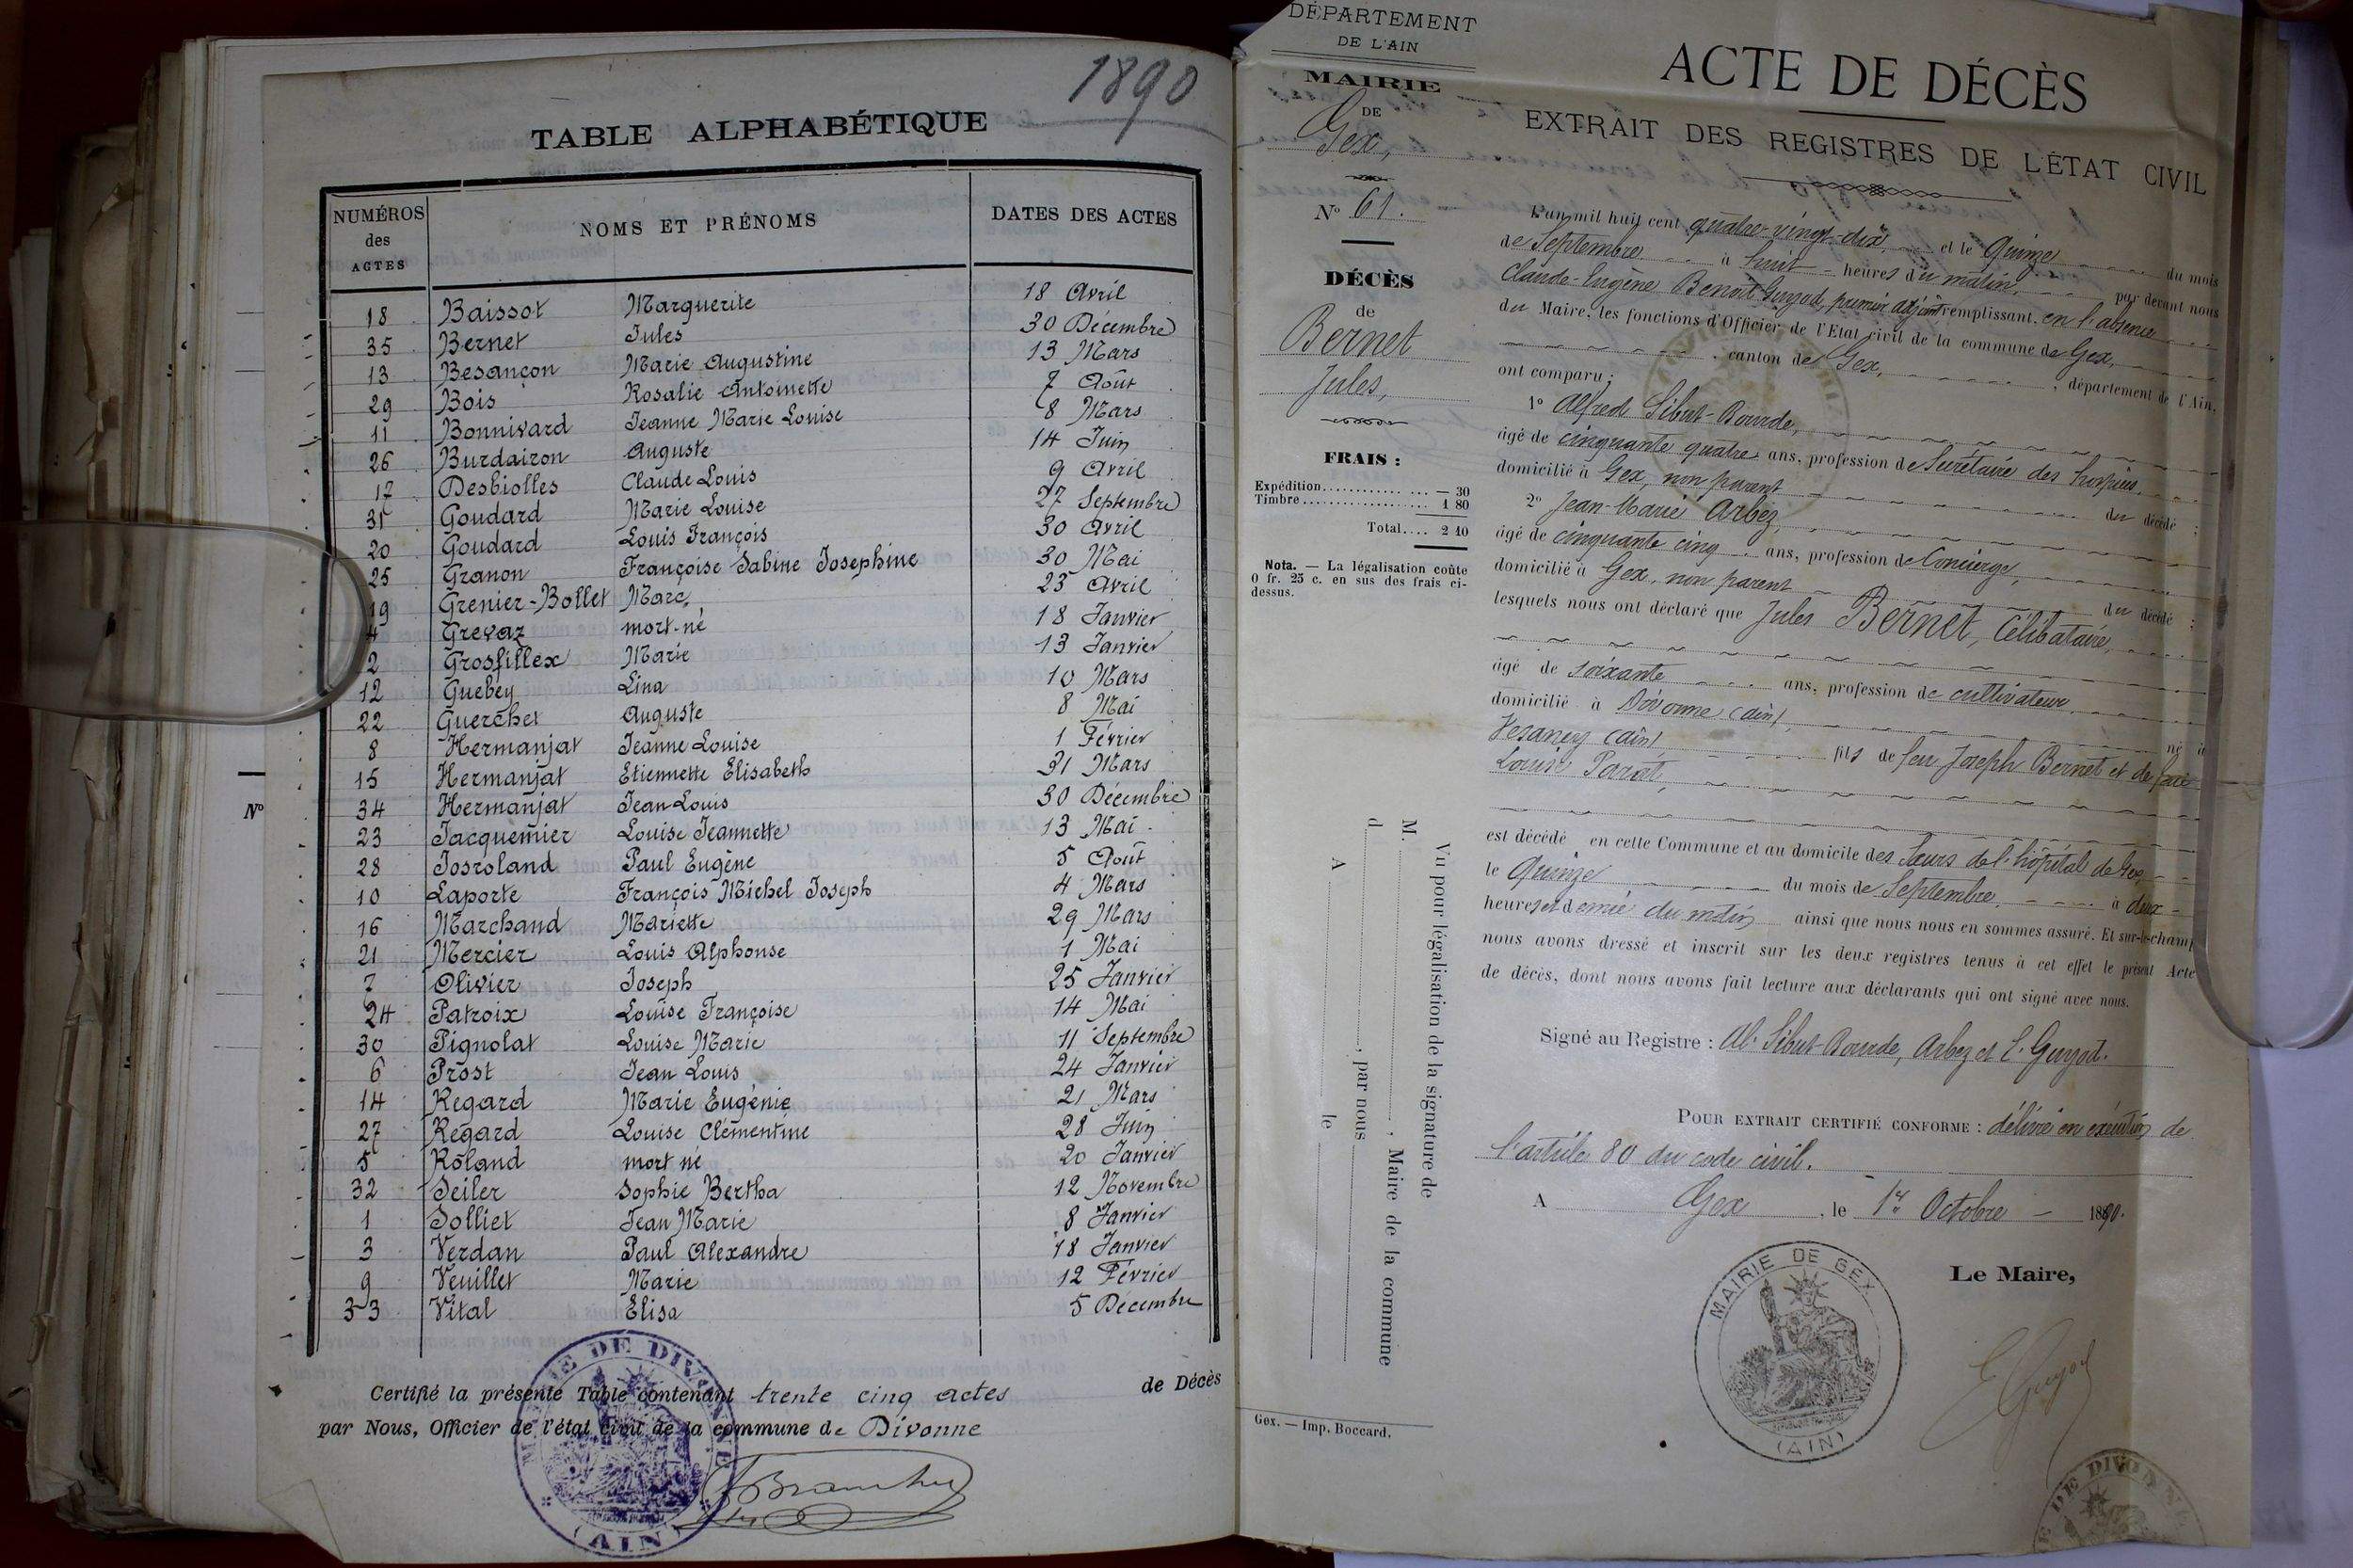 1890
TABLE ALPHABÉTIQUE
NUMÉROS des ACTES NOMS ET PRÉNOMS DATES DES ACTES
18 Baissot Marguerite 18 Avril
35 Bernet Jules 30 Décembre
13 Besançon Marie Augustine 13 Mars
29 Bois Rosalie Antoinette 7 Août
11 Bonnivard Jeanne Marie Louise 8 Mars
26 Burdairon Auguste 14 Juin
17 Desbiolles Claude Louis 9 Avril
31 Goudard Marie Louise 27 Septembre
20 Goudard Louis François 30 Avril
25 Granon Françoise Sabine Josephine 30 Mai
19 Grenier-Bollet Marc, 23 Avril
4 Grevaz mort-né 18 Janvier
2 Grosfillex Marie 13 Janvier
12 Guebey Lina 10 Mars
22 Guerchet Auguste 8 Mai
8 Hermanjat Jeanne Louise 1 Février
15 Hermanjat Etiennette Elisabeth 31 Mars
34 Hermanjat Jean Louis 30 Décembre
23 Jacquemier Louise Jeannette 13 Mai
28 Josroland Paul Eugène 5 Août
10 Laporte François Michel Joseph 4 Mars
16 Marchand Mariette 29 Mars
21 Mercier Louis Alphonse 1 Mai
7 Olivier Joseph 25 Janvier
24 Patroix Louise Françoise 14 Mai
30 Pignolat Louise Marie 11 Septembre
6 Prost Jean Louis 24 Janvier
14 Regard Marie Eugénie 21 Mars
27 Regard Louise Clémentine 28 Juin
5 Roland mort né 20 Janvier
32 Seiler Sophie Bertha 12 Novembre
1 Solliet Jean Marie 8 Janvier
3 Verdan Paul Alexandre 18 Janvier
9 Veuillet Marie 12 Février
33 Vital Elisa 5 Décembre
Certifié la présente Table contenant trente cinq actes de Décès
par Nous, Officier de l'état civil de la commune de Divonne
MAIRIE DE DIVONNE
(AIN)
Nº
DÉPARTEMENT
DE L'AIN
MAIRIE
DE
Gex,
Nº 61.
DÉCÈS
de
Bernet
Jules,
FRAIS :
Expédition — 30
Timbre 1 80
Total 2 10
Nota. — La légalisation coûte
0 fr. 25 c. en sus des frais ci-
dessus.
Vu pour légalisation de la signature de
M. , Maire de la commune
d , par nous
A le
Gex. — Imp. Boccard.
ACTE DE DÉCÈS
EXTRAIT DES REGISTRES DE L'ÉTAT CIVIL
L'an mil huit cent quatre-vingt-dix et le Quinze du mois
de Septembre à huit heures du matin, par devant nous
Claude-Eugène Benoit Guyod, premier adjoint remplissant, en l'absence
du Maire, les fonctions d'Officier de l'Etat civil de la commune de Gex,
canton de Gex, , département de l'Ain,
ont comparu :
1º Alfred Sibut-Bourde,
âgé de cinquante quatre ans, profession de Secrétaire des hospices,
domicilié à Gex, non parent du décédé ;
2º Jean-Marie Arbez,
âgé de cinquante cinq ans, profession de Concierge,
domicilié à Gex, non parent du décédé ;
lesquels nous ont déclaré que Jules Bernet, Célibataire,
âgé de soixante ans, profession de cultivateur,
domicilié à Divonne (Ain), né à
Vesancy (Ain), fils de feu Joseph Bernet et de feue
Louise
est décédé en cette Commune et au domicile des Sœurs de l'hôpital de Gex,
le Quinze du mois de Septembre, à deux
heures et demie du matin ainsi que nous nous en sommes assuré. Et sur-le-champ
nous avons dressé et inscrit sur les deux registres tenus à cet effet le présent Acte
de décès, dont nous avons fait lecture aux déclarants qui ont signé avec nous.
Signé au Registre : Al. Sibut-Bourde, Arbez et E. Guyod.
POUR EXTRAIT CERTIFIÉ CONFORME : délivré en exécution de
l'article 80 du code civil.
A Gex, le 1er Octobre 1890.
Le Maire,
MAIRIE DE GEX
(AIN)
E Guyod
DE DIVONNE